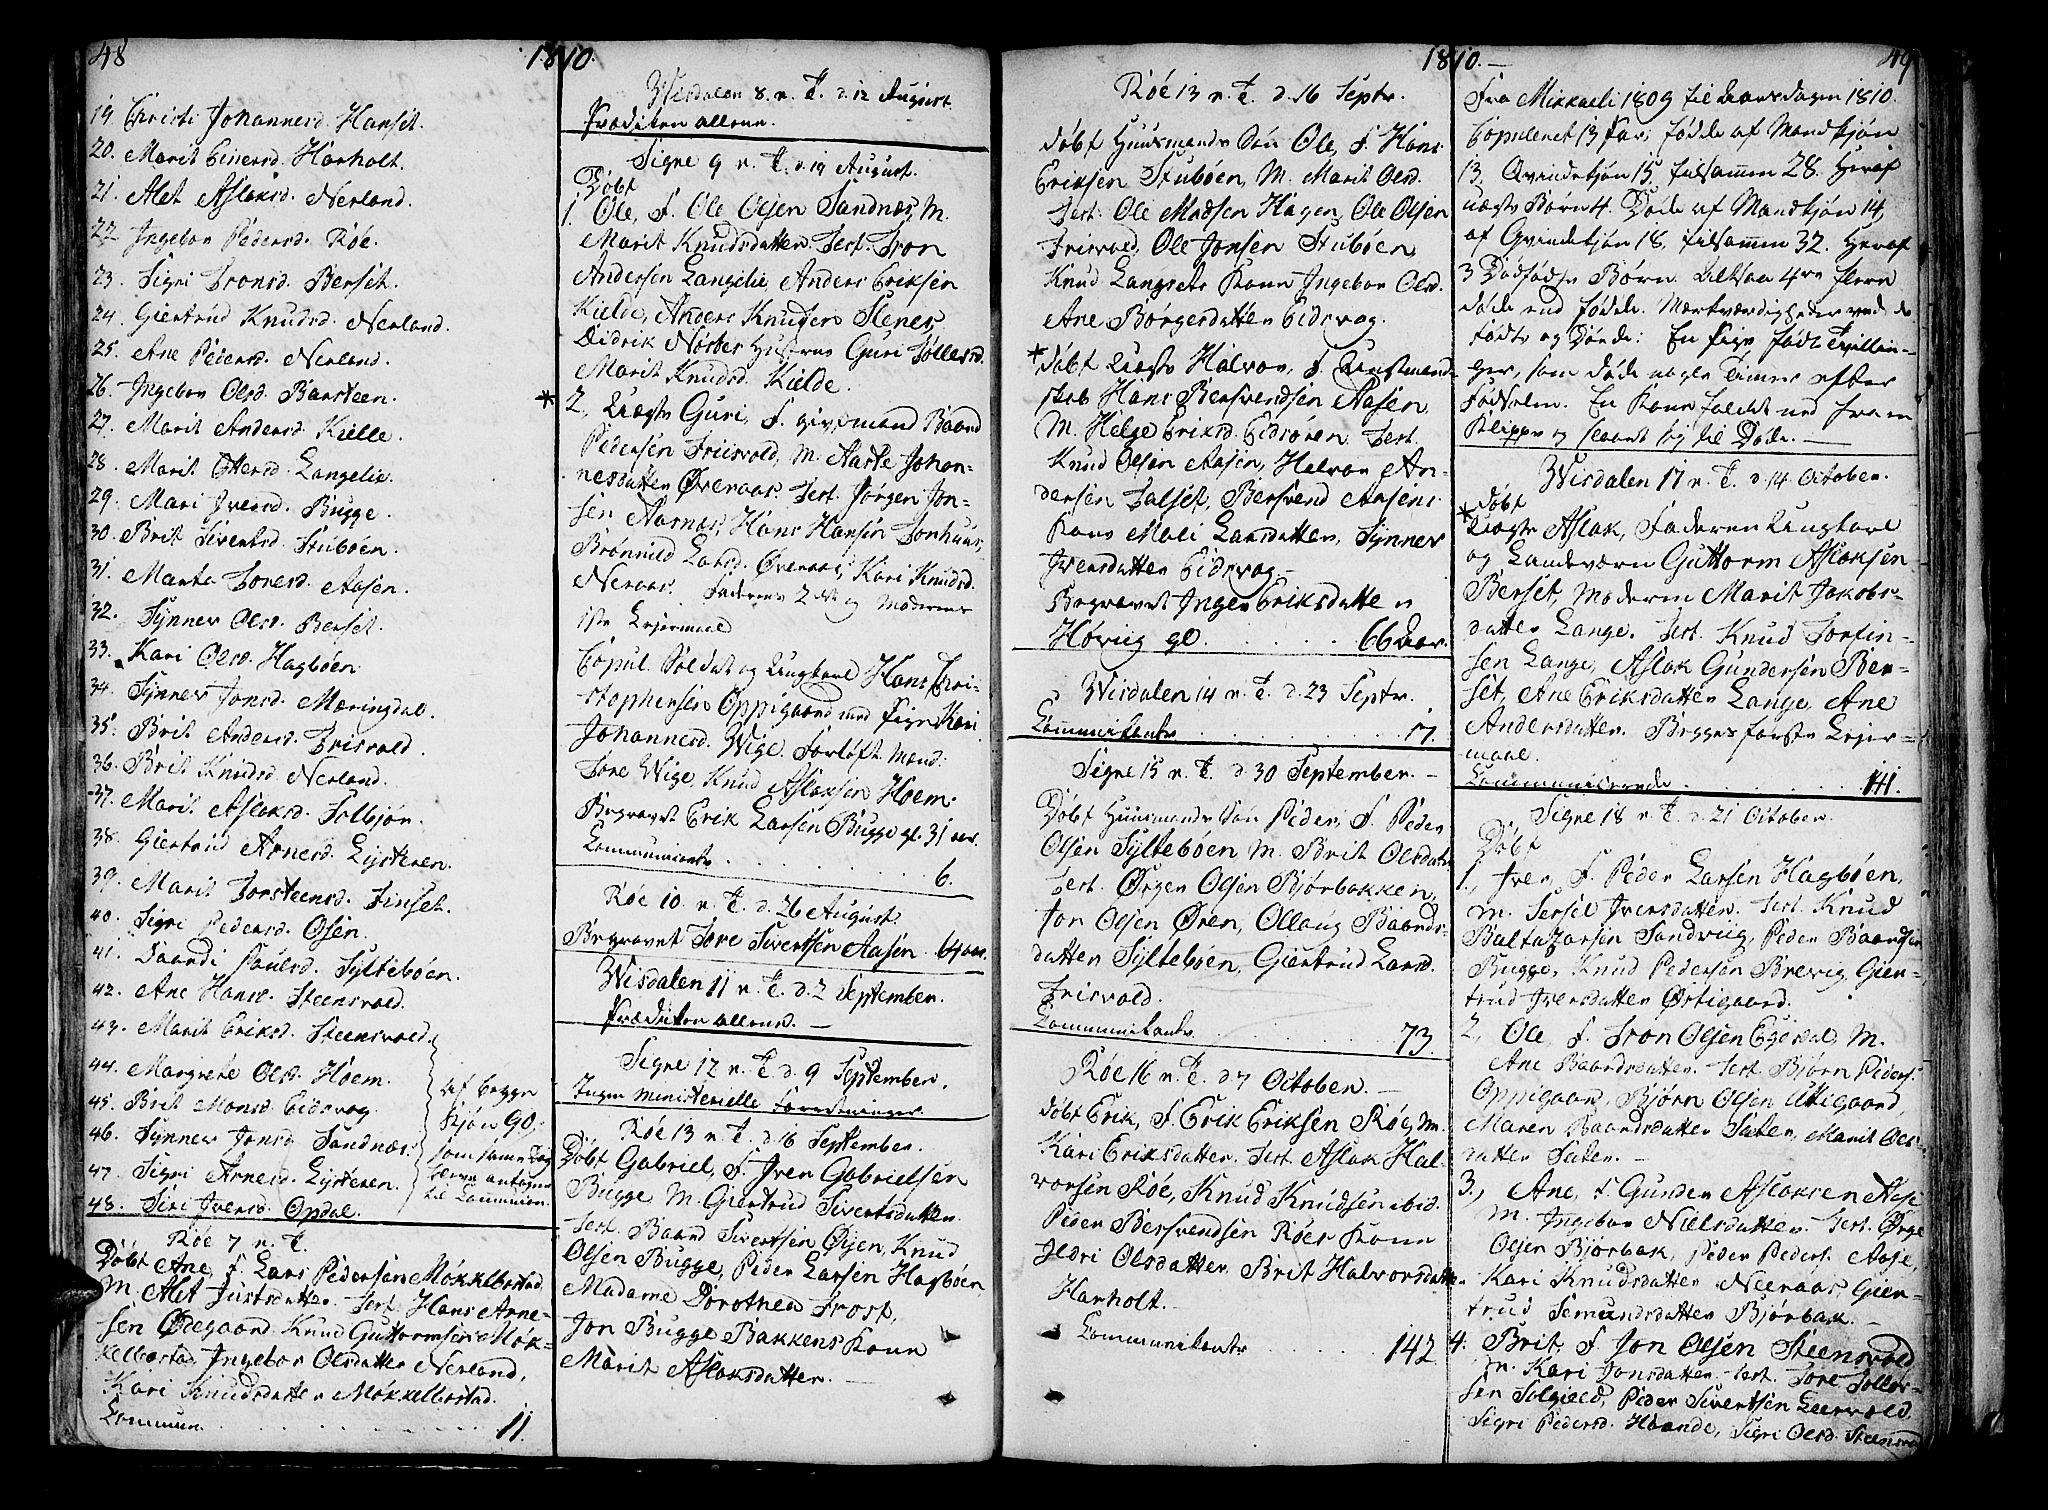 48
1810.
19. Christi Johannesd. Hanset.
20. Marit Einersd. Harholt.
21. Alet Aslaksd. Nerland.
22 Ingebor Pedersd. Röe.
23. Sigri Tronsd. Berset.
24. Giertrud Knudsd. Nerland.
25. Ane Pedersd. Nerland.
26. Ingebor Olsd. Baarsteen.
27. Marit Andersd. Kielle.
28. Marit Ottersd. Langelie.
29. Mari Iversd. Bugge.
30. Brit Sivertsd. Stuböen.
31. Marta Toresd. Aasen.
32. Synnev Olsd. Berset.
33. Kari Olsd. Hagböen
34. Synnev Jonsd. Meringdal.
35. Brit Andersd. Frisvold.
36. Brit Knudsd. Nerland.
37. Marit Aslaksd. Solbjör.
38. Giertrud Arnesd. Lysteren.
39. Marit Torsteensd. Finset.
40. Sigri Pedersd. Osen.
41. Baardi Paulsd. Sylteböen.
42. Ane Hansd. Steensvold.
43. Marit Eriksd. Steensvold.
44. Margrete Olsd. Hoem.
45. Brit Monsd. Eidsvog.
46. Synnev Jonsd. Sandnæs.
47. Sigri Arnesd. Lysteren.
48. Siri Iversd. Opdal.
af begge
Kjön 90,
som samme Dag
bleve antagne
til Communion.
Röe 7 n. T.
Döbt Ane, F. Lars Pedersen Mökkelbostad
M. Alet Justsdatter. Test. Hans Arne-
sen Ödegaard Knud Guttormsen Mök-
kelbostad, Ingebor Olsdatter Nerland,
Kari Knudsdatter Mökkelbostad.
Commun. 11.
Wisdalen 8. n. T. d. 12 August
Prædiken allene.
Signe 9 n. T. d. 19 August.
Döbt
1. Ole, F. Ole Olsen Sandnæs, M.
Marit Knudsdatter. Test. Tron
Andersen Langelie, Anders Eriksen
Kielde, Anders Knudsen Stenes,
Didrik Norbes Hustrue Guri Tollevsd.
Marit Knudsd. Kielde.
* 2, Uægte Guri, F. givt mand Baard
Pedersen Friisvold, M. Marte Johan-
nesdatter Överaas. Test. Jörgen Jon-
sen Aarnæs, Hans Hansen Tonhuus,
Brönnild Larsd. Överaas, Kari Knudsd.
Neraas. Faderens 2det og Moderens
1ste Lejermaal
Copul. Soldat og Ungkarl Hans Chri-
stophersen Oppigaard med Pige Kari
Johannesd. Wige. Forlöft. Mænd:
Tore Wige, Knud Aslaksen Hoem.
Begravet Erik Larsen Bugge gl. 31 aar.
Communicants 6.
Röe 10 n. T. d. 26 August.
Begravet Tore Sivertsen Aasen
Wisdalen 11 n. T. d. 2 September.
Prædiken allene.
Signe 12 n. T. d. 9 September.
Ingen ministerielle Forretninger
Röe 13 n. T. d. 16 September.
Döbt Gabriel, F. Iver Gabrielsen
Bugge M. Giertrud Sivertsdatter.
Test. Baard Sivertsen Öyen, Knud
Olsen Bugge, Peder Larsen Hagböen
Madame Dorothea Frost,
Jon Bugge Bakkens Kone
Marit Aslaksdatter.
1810.
49
Röe 13 n. T. d. 16 Septr.
Döbt Huusmands Sön Ole, F. Hans
Eriksen Stuböen, M. Marit Olsd.
Test. Ole Madsen Hagen, Ole Olsen
Friisvold, Ole Jonsen Stuböen
Knud Langsets Kone Ingebor Olsd.
Ane Börgesdatter Eidsvog.
* Döbt Uægte Halvor, F. Ungmand-
skab Hans Bersvendsen Aasen,
M. Helge Eriksd. Eidsören Test.
Knud Olsen Aasen, Halvor An-
dersen Talset, Bersvend Aasens
Kone Mali Larsdatter, Synnev
Iversdatter Eidsvog.
Begravet Inger Eriksdatter
Hövig gl. 66 Aar.
Wisdalen 14 n. T. d. 23 Septr.
Communikants 17.
Signe 15 n. T. d. 30 September.
Döbt Huusmands Sön Peder, F. Peder
Olsen Sylteböen M. Brit Olsdatr
Test. Örgen Olsen Bjørbakken,
Jon Olsen Ören, Ollaug Baards-
datter Sylteböen, Giertrud Larsd.
Frisvold.
Communikants 73.
Röe 16 n. T. d. 7 October.
Döbt Erik, F. Erik Eriksen Röe, M.
Kari Eriksdatter. Test. Aslak Hal-
vorsen Röe, Knud Knudsen ibid.
Peder Bersvendsen Röes Kone
Jldri Olsdatter, Brit Halvorsdatter
Harholt.
Communikants 142.
Fra Mikkaeli 1809 til Aarsdagen 1810.
Copuleret 13 Par, födde af Mandkjön
13. Qvindekjön 15, tilsammen 28. Heraf
uægte Börn 4. Döde af Mandkjön 14,
af Qvindekjön 18, tilsammen 32. Heraf
3 Dödfödte Börn. Altsaa 4re flere
döde end fødde. Mærkværdigheder ved de
födte og Döde: En Pige födt Tvillin-
ger, som döde nogle Timer efter
Födselen. En Kone faldt ned fra en
Klippe og slaaet sig til Döde.
Wisdalen 17 n. T. d. 14 October.
Döbt
* Uægte Aslak, Faderen Ungkarl
og Landeværn Guttorm Aslaksen
Berset, Moderen Marit Jakobs-
datter Lange. Test. Knud Torfin-
sen Lange, Aslak Gundersen Ber-
set, Ane Eriksdatter Lange, Ane
Andersdatter. Begges förste Lejer-
maal.
Communicerende 141.
Signe 18 n. T. d. 21 October.
Döbt
1., Iver, F. Peder Larsen Hagböen,
M. Sersel Iversdatter. Test. Knud
Baltazarsen Sandvig, Peder Baardsen
Bugge, Knud Pedersen Brevig, Gier-
trud Iversdatter Östigaard.
2, Ole, F. Tron Olsen Egdedal, M.
Ane Baardsdatter. Test. Björn Peders.
Oppigaard, Björn Olsen Utigaard,
Maren Baardsdatter Sæter, Marit Ols-
datter Sæter.
3., Ane, F. Gunder Aslaksen Aase
M. Ingebor Nielsdatter. Test. Örge
Olsen Bjørbak, Peder Peders. Aase,
Kari Knudsdatter Neeraas, Gier-
trud Semundsdatter Bjørbak.
4. Brit, F. Jon Olsen Steensvold
M. Kari Jonsdatter. Test. Tore Tollev-
sen Solgield, Peder Sivertsen Leervold,
Sigri Pedersd. Haande, Sigri Olsd. Steensvod